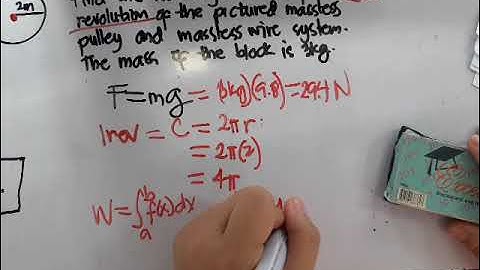 2m
revolution of the pictured massless
pulley and massless wire system.
The mass of the block is 3kg.
F=mg = (3kg)(9.8)=29.4 N
1 rev = C = 2πr
= 2π(2)
= 4π
W = ∫ₐᵇ f(x)dx